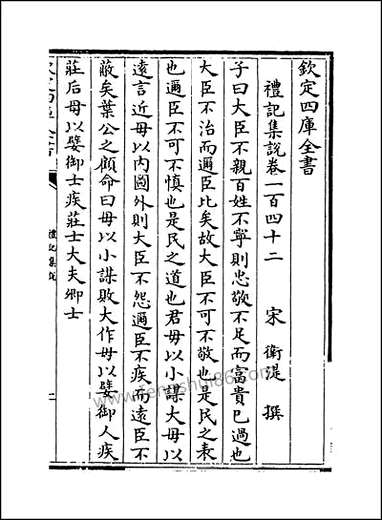 欽定四庫全書
禮記集說卷一百四十二
宋 衛湜 撰
子曰大臣不親百姓不寧則忠敬不足而富貴已過也
大臣不治而邇臣比矣故大臣不可不敬也是民之表
也邇臣不可不慎也是民之道也君毋以小謀大毋以
遠言近毋以內圖外則大臣不怨邇臣不疾而遠臣不
蔽矣葉公之顧命曰毋以小謀敗大作毋以嬖御人疾
莊后毋以嬖御士疾莊士大夫卿士
禮記集說